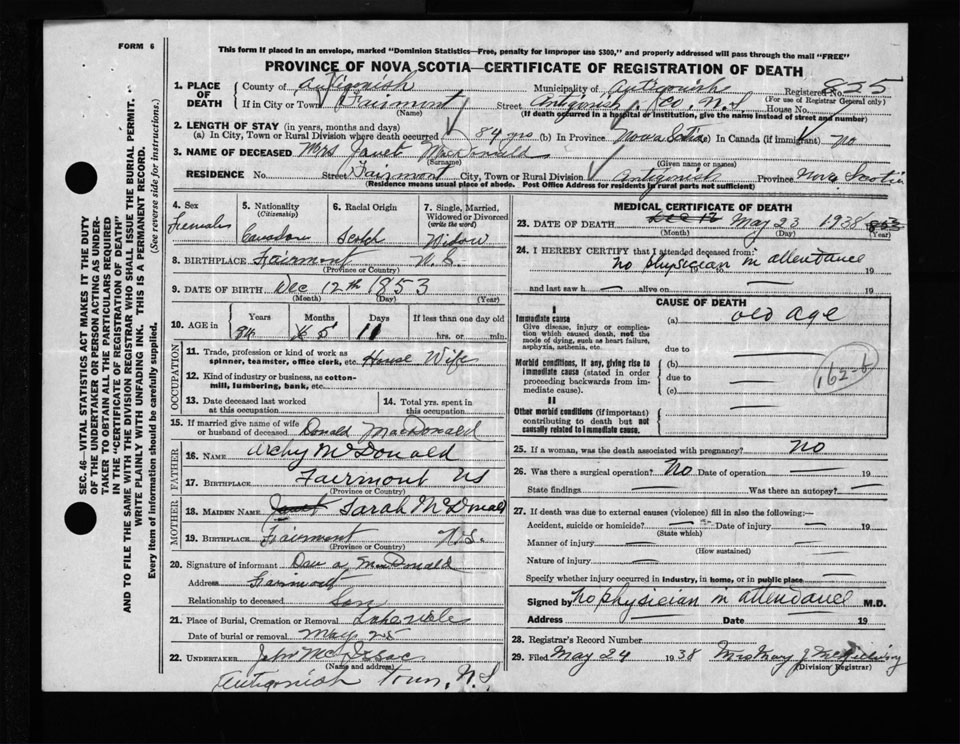 FORM 6
This form if placed in an envelope, marked "Dominion Statistics—Free, penalty for improper use $300," and properly addressed will pass through the mail "FREE"
PROVINCE OF NOVA SCOTIA—CERTIFICATE OF REGISTRATION OF DEATH
1. PLACE OF DEATH
County of Antigonish Municipality of Antigonish Registered No. 825
(For use of Registrar General only)
If in City or Town Fairmont Street Antigonish Co. N.S House No.
(Name) (If death occurred in a hospital or institution, give the name instead of street and number)
2. LENGTH OF STAY (in years, months and days)
(a) In City, Town or Rural Division where death occurred 84 yrs (b) In Province Nova Scotia In Canada (if immigrant) no
3. NAME OF DECEASED Mrs Janet MacDonald
(Surname) (Given name or names)
RESIDENCE No. Street Fairmont City, Town or Rural Division Antigonish Province Nova Scotia
(Residence means usual place of abode. Post Office Address for residents in rural parts not sufficient)
4. Sex Female
5. Nationality (Citizenship) Canadian
6. Racial Origin Scotch
7. Single, Married, Widowed or Divorced (write the word) Widow
8. BIRTHPLACE Fairmont N.S.
(Province or Country)
9. DATE OF BIRTH Dec 12th 1853
(Month) (Day) (Year)
10. AGE in Years Months Days If less than one day old
84 5 11 hrs. or min.
OCCUPATION
11. Trade, profession or kind of work as spinner, teamster, office clerk, etc. House Wife
12. Kind of industry or business, as cotton-mill, lumbering, bank, etc.
13. Date deceased last worked at this occupation
14. Total yrs. spent in this occupation
15. If married give name of wife or husband of deceased Donald MacDonald
FATHER
16. NAME Archy McDonald
17. BIRTHPLACE Fairmont NS
(Province or Country)
MOTHER
18. MAIDEN NAME Janet Sarah McDonald
19. BIRTHPLACE Fairmont N.S.
(Province or Country)
20. Signature of informant Dan A MacDonald
Address Fairmont
Relationship to deceased Son
21. Place of Burial, Cremation or Removal Lakevale
Date of burial or removal May 25
22. UNDERTAKER John McIsaac
(Name and address)
Antigonish Town, N.S
MEDICAL CERTIFICATE OF DEATH
23. DATE OF DEATH Dec 12 May 23 1938
(Month) (Day) (Year)
24. I HEREBY CERTIFY that I attended deceased from:
no physician in attendance
to 19
and last saw h alive on 19
CAUSE OF DEATH
I
Immediate cause
Give disease, injury or complication which caused death, not the mode of dying, such as heart failure, asphyxia, asthenia, etc.
(a) old age
due to
Morbid conditions, if any, giving rise to immediate cause (stated in order proceeding backwards from immediate cause).
(b)
due to
(c)
162-b
II
Other morbid conditions (if important) contributing to death but not causally related to immediate cause.
25. If a woman, was the death associated with pregnancy? no
26. Was there a surgical operation? No Date of operation 19
State findings Was there an autopsy?
27. If death was due to external causes (violence) fill in also the following:—
Accident, suicide or homicide? Date of injury 19
(State which)
Manner of injury
(How sustained)
Nature of injury
Specify whether injury occurred in industry, in home, or in public place
Signed by no physician in attendance M.D.
Address Date 19
28. Registrar's Record Number
29. Filed May 24 1938 Mrs Mary J McGillivray
(Division Registrar)
SEC. 46—VITAL STATISTICS ACT MAKES IT THE DUTY
OF THE UNDERTAKER OR PERSON ACTING AS UNDERTAKER TO OBTAIN ALL THE PARTICULARS REQUIRED
IN THE "CERTIFICATE OF REGISTRATION OF DEATH"
AND TO FILE THE SAME WITH THE DIVISION REGISTRAR WHO SHALL ISSUE THE BURIAL PERMIT.
WRITE PLAINLY WITH UNFADING INK. THIS IS A PERMANENT RECORD.
Every item of Information should be carefully supplied. (See reverse side for instructions.)